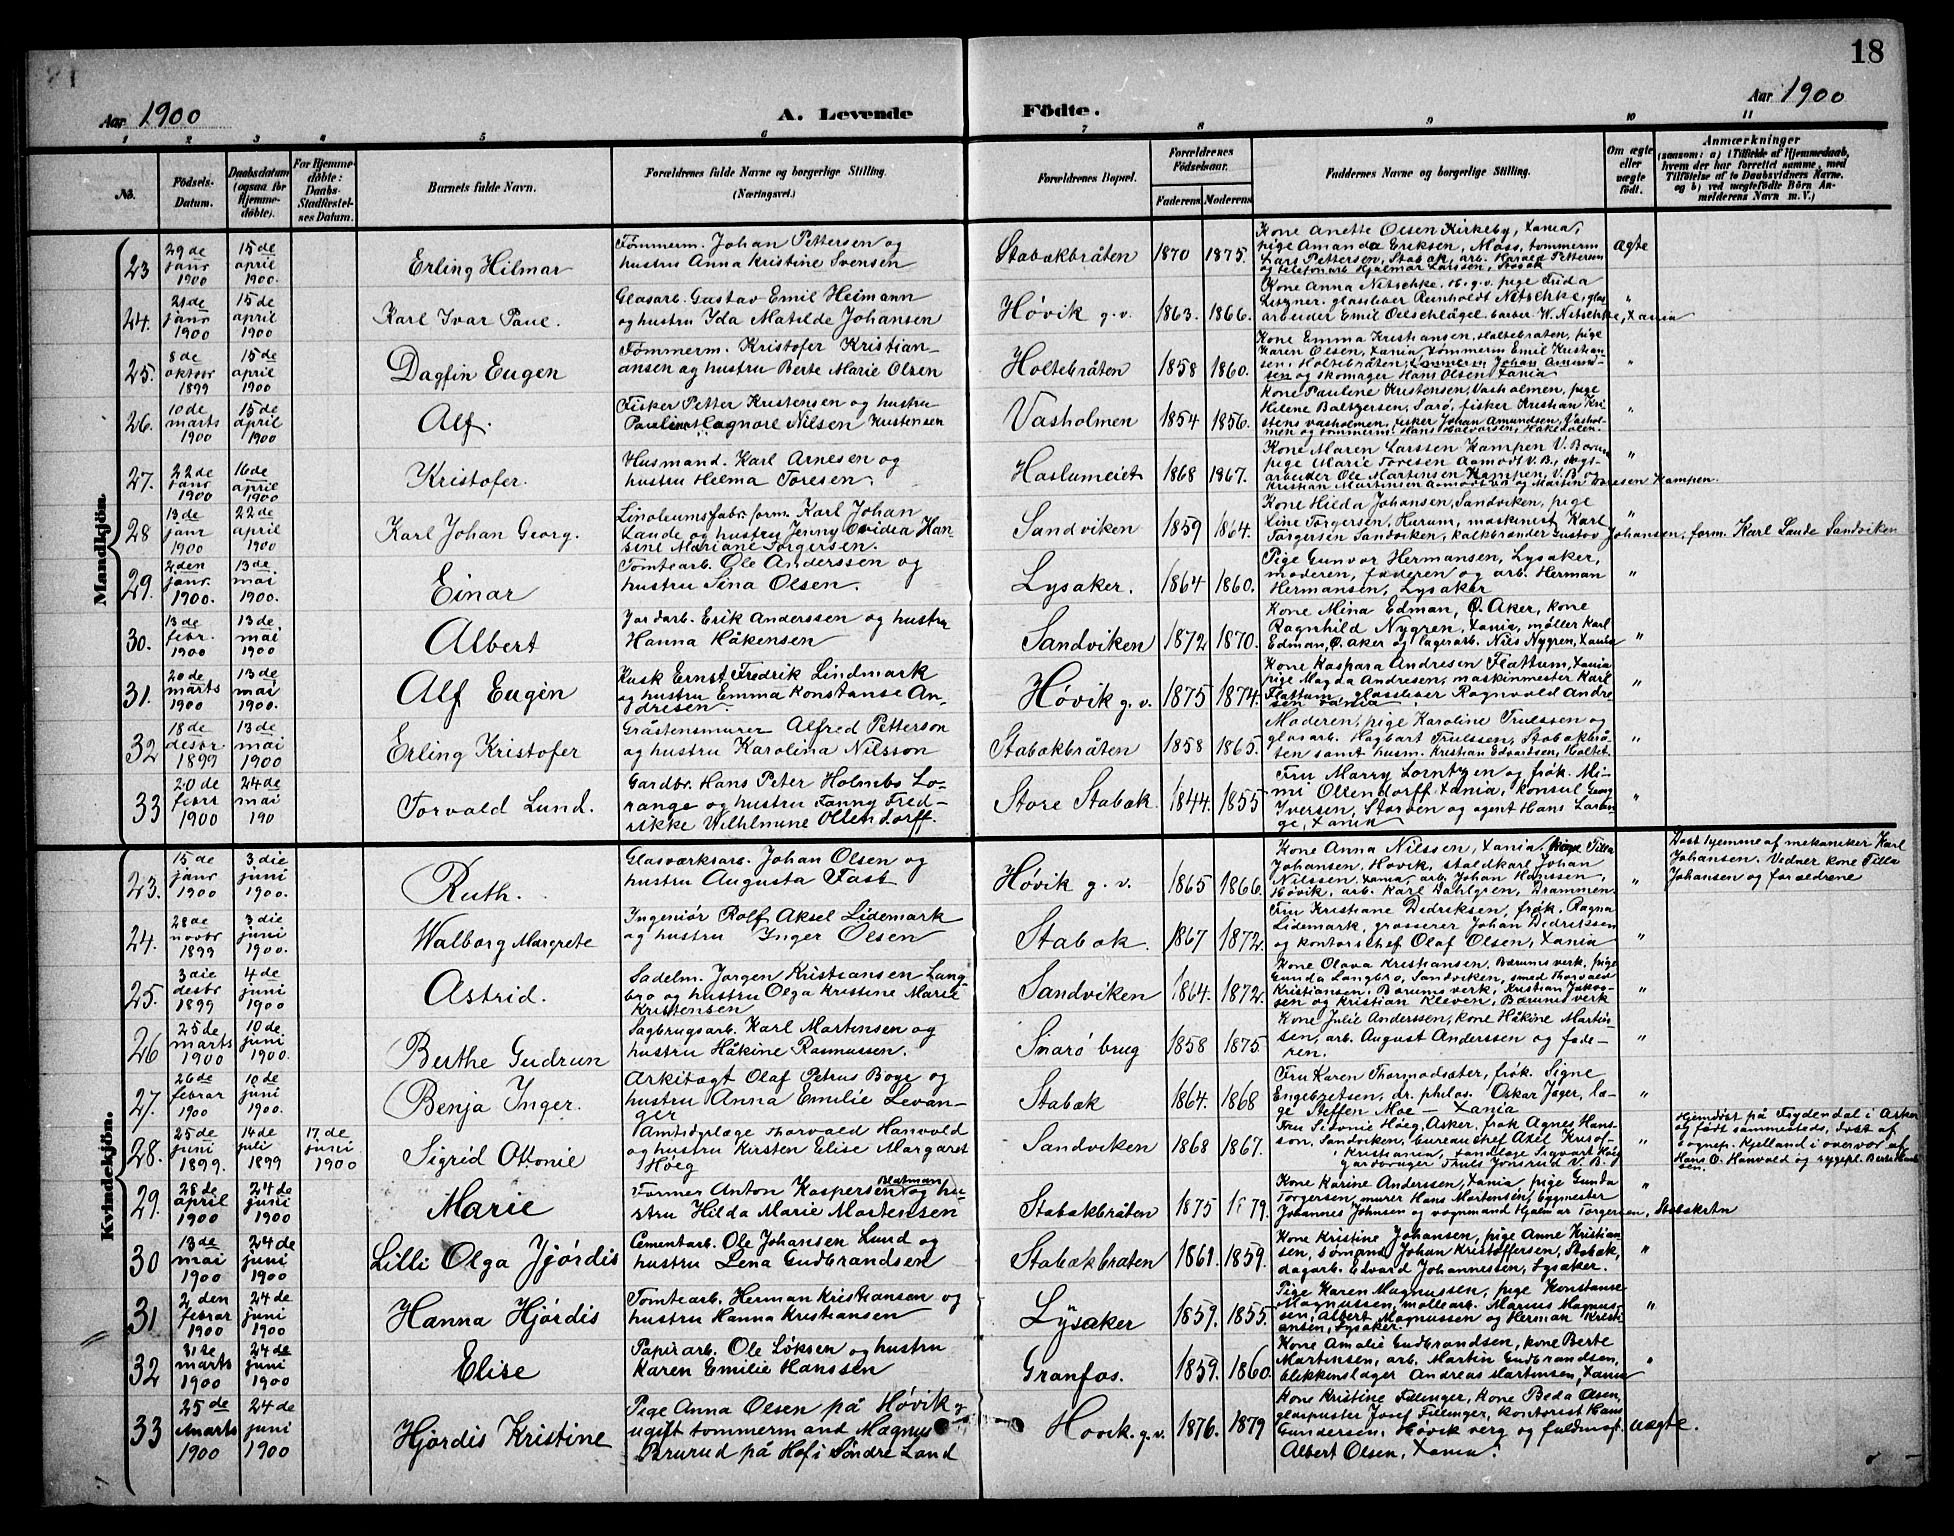 18
Aar 1900
A. Levende
Födte.
Aar 1900
1 2 3 4 5 6 7 8 9 10 11
No.
Födsels-Datum.
Daabsdatum (ogsaa for Hjemmedöbte).
For Hjemmedöbte: Daabs-Stadfæstelses Datum.
Barnets fulde Navn.
Forældrenes fulde Navne og borgerlige Stilling.
(Næringsvei.)
Forældrenes Bopæl.
Forældrenes Födselsaar.
Faderens Moderens
Faddernes Navne og borgerlige Stilling.
Om ægte eller uægte födt.
Anmærkninger
(saasom: a) i Tilfælde af Hjemmedaab, hvem der har forrettet samme, med Tilföielse af to Daabsvidners Navne, og b) ved uægtefödte Börn Anmelderens Navn m. V.)
Mandkjön.
23 29de janr 1900 15de april 1900. Erling Hilmar
Tømmerm. Johan Pettersen og
hustru Anna Kristine Svensen
Stabækbråten 1870 1875.
Kone Anette Olsen Kirkeby, Xania,
pige Amanda Eriksen, Moss, tømmerm
Lars Pettersen, Stabæk, arb. Harald Pettersen
og telefonarb Hjalmar Larssen
ægte
24. janr 1900 15de april 1900 Karl Ivar Paul
Glasarb. Gustav Emil Heimann
og hustru Ida Matilde Johansen
Høvik g.v. 1863. 1866.
Kone Anna Nitschke, H. g.v. pige Frida
glassliber Reinholdt Nitschke, glas-
arbeider Emil Oelschlägel barber W. Nitschke, Xania
"
25. 8de oktobr 1899 15de april 1900 Dagfin Eugen
Tømmerm. Kristofer Kristian-
ansen og hustru Berte Marie Olsen
Holtebråten 1858 1860.
Kone Emma Kristiansen, Holtebråten, pige
Karen Olsen, Xania, Tømmerm Emil Kristian-
sen, Holtebråten, tømmerm Johan Amund-
sen og skomager Hans Olsen Xania
"
26. 10de marts 1900 15de april 1900 Alf.
Fisker Petter Kristensen og hustru
Pauline Magnore Nilsen Kristensen
Vasholmen 1854 1856.
Kone Pauline Kristensen, Vasholmen, pige
Helene Baltzersen, Sarø, fisker Kristian Kri-
stens vasholmen, fisker Johan Amundsen, Vashol-
men og tømmerm. Hans Halvorsen, Hakedalen.
"
27. 22de janr 1900 16de april 1900 Kristofer.
Husmand. Karl Arnesen og
hustru Hilma Toresen.
Haslumeiet 1868 1867.
Kone Maren Larssen Kampen V. Bærum
pige Marie Toresen Aamodt V.B., skogs-
arbeider Ole Martinsen Kampen V.B. og
Kristian Martinsen Aamodt og Martin Toresen Kampen.
"
28 13de janr 1900 22de april 1900 Karl Johan Georg.
Linoleumsfabr. form. Karl Johan
Laude og hustru Jenny Ovidia Han-
sine Mariane Torgersen.
Sandviken 1859 1864.
Kone Hilda Johansen, Sandviken, pige
Line Torgersen, Hurum, maskinest Karl
Torgersen Sandviken, kalkbrænder Gustav Johansen, form. Karl Laude Sandviken
"
29. 2den janr. 1900. 13de. mai 1900. Einar
Tomtearb. Ole Anderssen og
hustru Sina Olsen.
Lysaker. 1864 1860.
Pige Gunvor Hermansen, Lysaker,
moderen, faderen og arb. Herman
Hermansen, Lysaker
"
30. 13de febr. 1900 13de. mai 1900 Albert
Jordarb. Erik Anderssen og hustru
Hanna Håkensen
Sandviken 1872 1870.
Kone Mina Edman, Ø. Aker, kone
Ragnhild Nygren, Xania, møller Karl
Edman, Ø. Aker og lagerarb. Nils Nygren, Xania
"
31. 20de marts 1900 13de mai 1900. Alf Eugén
Kusk Ernst Fredrik Lindmark
og hustru Emma Konstanse An-
dresen.
Høvik g.v. 1875 1874.
Kone Kaspara Andresen Flattum, Xania
pige Magda Andresen, maskinmester Karl
Flattum, glassliber Ragnvald Andre-
sen Xania.
"
32 18de desbr 1899 13de mai 1900 Erling Kristofer
Gråstensmurer Alfred Petterson
og hustru Karolina Nilsson
Stabækbråten 1858 1865.
Moderen, pige Karoline Trulssen og
glasarb. Hagbart Trulssen, Stabækbrå-
ten samt husm. Kristian Edvardsen, Holtet.
"
33 20de febr 1900 24de mai 190 Torvald Lund.
Gardbr. Hans Peter Holmbo Lo-
range og hustru Fanny Fred-
rikke Wilhlmine Ollendorff.
Store Stabæk. 1844. 1855
Fru Marry Lorntzen og frøk. Mi-
mi Ollendorff Xania, konsul Georg
Iversen, Storøen og agent Hans Loran-
ge, Xania
"
Kvindekjön.
23. 15de janr 1900 3die juni 1900. Ruth.
Glasværksarb. Johan Olsen og
hustru Augusta Fast
Høvik g.v. 1865 1866.
Kone Anna Nilssen, Xania, kone Tilla
Johansen, Høvik, staldkarl Johan
Nilssen, Xania, arb Johan Hanssen,
Høvik, arb. Karl Dahlgren, Drammen.
"
Døbt hjemme af mekaniker Karl
Johansen. Vidner kone Tilla
Johansen og forældrene
24. 28de novbr 1899 3die juni 1900. Walborg Margrete
Ingeniør Rolf Aksel Lidemark
og hustru Inger Olsen
Stabæk. 1867 1872.
Fru Kristiane Dedriksen, frøk. Ragna
Lidemark, grosserer Johan Dedrikssen
og kontorschef Olaf Olsen, Xania
"
25. 3die desbr 1899 4de juni 1900 Astrid.
Sadelm. Jørgen Kristiansen Lang-
bro og hustru Olga Kristine Marie
Kristensen
Sandviken 1864. 1872.
Kone Olava Kristiansen, Bærums verk, pige
Gunda Langbro, Sandviken, smed Thorvald
Kristiansen, Bærums verk, Kristian Jakob-
sen og Kristian Kleven, Bærums verk
"
26 25de marts 1900 10de. juni 1900. Berthe Gudrun
Sagbrugsarb. Karl Martensen og
hustru Håkine Rasmussen.
Snarø brug 1858 1875.
Kone Julie Anderssen, kone Håkine Martin-
sen, arb. August Anderssen og fade-
ren.
"
27. 26de februar 1900 10de juni 1900. Benja Inger.
Arkitægt Olaf Petrus Boye og
hustru Anna Emilie Levan-
ger
Stabæk 1864. 1868
Fru Karen Thormodsæter, frøk. Signe
Engebretsen, dr. philos. Oskar Jæger, læ-
ge Steffen Moe — Xania
"
28. 25de juni 1899. 14de juli 1899 17de juni 1900 Sigrid Ottonie
Amtsdyrlæge Thorvald Hanvold
og hustru Kirsten Elise Margaret
Høeg
Sandviken 1868 1867.
Fru Sidonie Höeg, Asker, frøk Agnes Hans-
son, Sandviken, bureauchef Axel Kristof-
Kristiania, tandlæge Sigvart Höeg
gardbruger Truls Jonsrud V. B.
"
Hjemdøbt på Frydendal i Asker
og født sammesteds, døbt af
sognep. Kjelland i overvær af
Hans O. Hanvold og sygepl. Berte
29. 28de april 1900 24de juni 1900 Marie
Former Anton Kaspersen Blatman og hu-
stru Hilda Marie Mortensen
Stabækbråten 1875 1879.
Kone Karine Anderssen, Xania, pige Gunda
Torgersen, murer Hans Mortensen, bygmester
Johannes Johnsen og vognmand Hjalmar Torgersen, Stabækbrtn
"
30 13de mai 1900 24de juni 1900 Lilli Olga Hjørdis
Cementarb. Ole Johansen Lund og
hustru Lena Gudbrandsen
Stabækbraten 1861. 1859.
Kone Kristine Johansen, pige Anne Kristian-
sen, sømand Johan Kristoffersen, Stabæk,
dagarb. Edvard Johannessen, Lysaker.
"
31 2den februar 1900 24de juni 1900 Hanna Hjørdis
Tomtearb. Herman Kristiansen og
hustru Hanna Kristiansen
Lysaker 1859. 1855.
Pige Karen Magnussen, pige Konstanse
Magnussen, møllearb. Marius Magnus-
sen, Albert Magnussen og Herman Kristi-
ansen, Lysaker.
"
32 31te marts 1900 24de juni 1900 Elise
Papirarb. Ole Løksen og hustru
Karen Emilie Hanssen
Granfos. 1859. 1860
Kone Amalie Gudbrandsen, kone Berte
Martinsen, arb. Martin Gudbrandsen,
blikkenslager Andreas Martinsen, Xania
"
33 25de marts 1900 24de juni 1900 Hjørdis Kristine
Pige Anna Olsen på Høvik og
ugift tømmermand Magnus
Brurud på Hof i Søndre Land
Høvik. g.v. 1876. 1879
Kone Kristine Fillinger, kone Beda Olsen,
glaspuster Josef Fillinger, kontorist Hans
Gundersen, Høvik verg og fuldmæt.
Albert Olsen, Xania.
uægte.